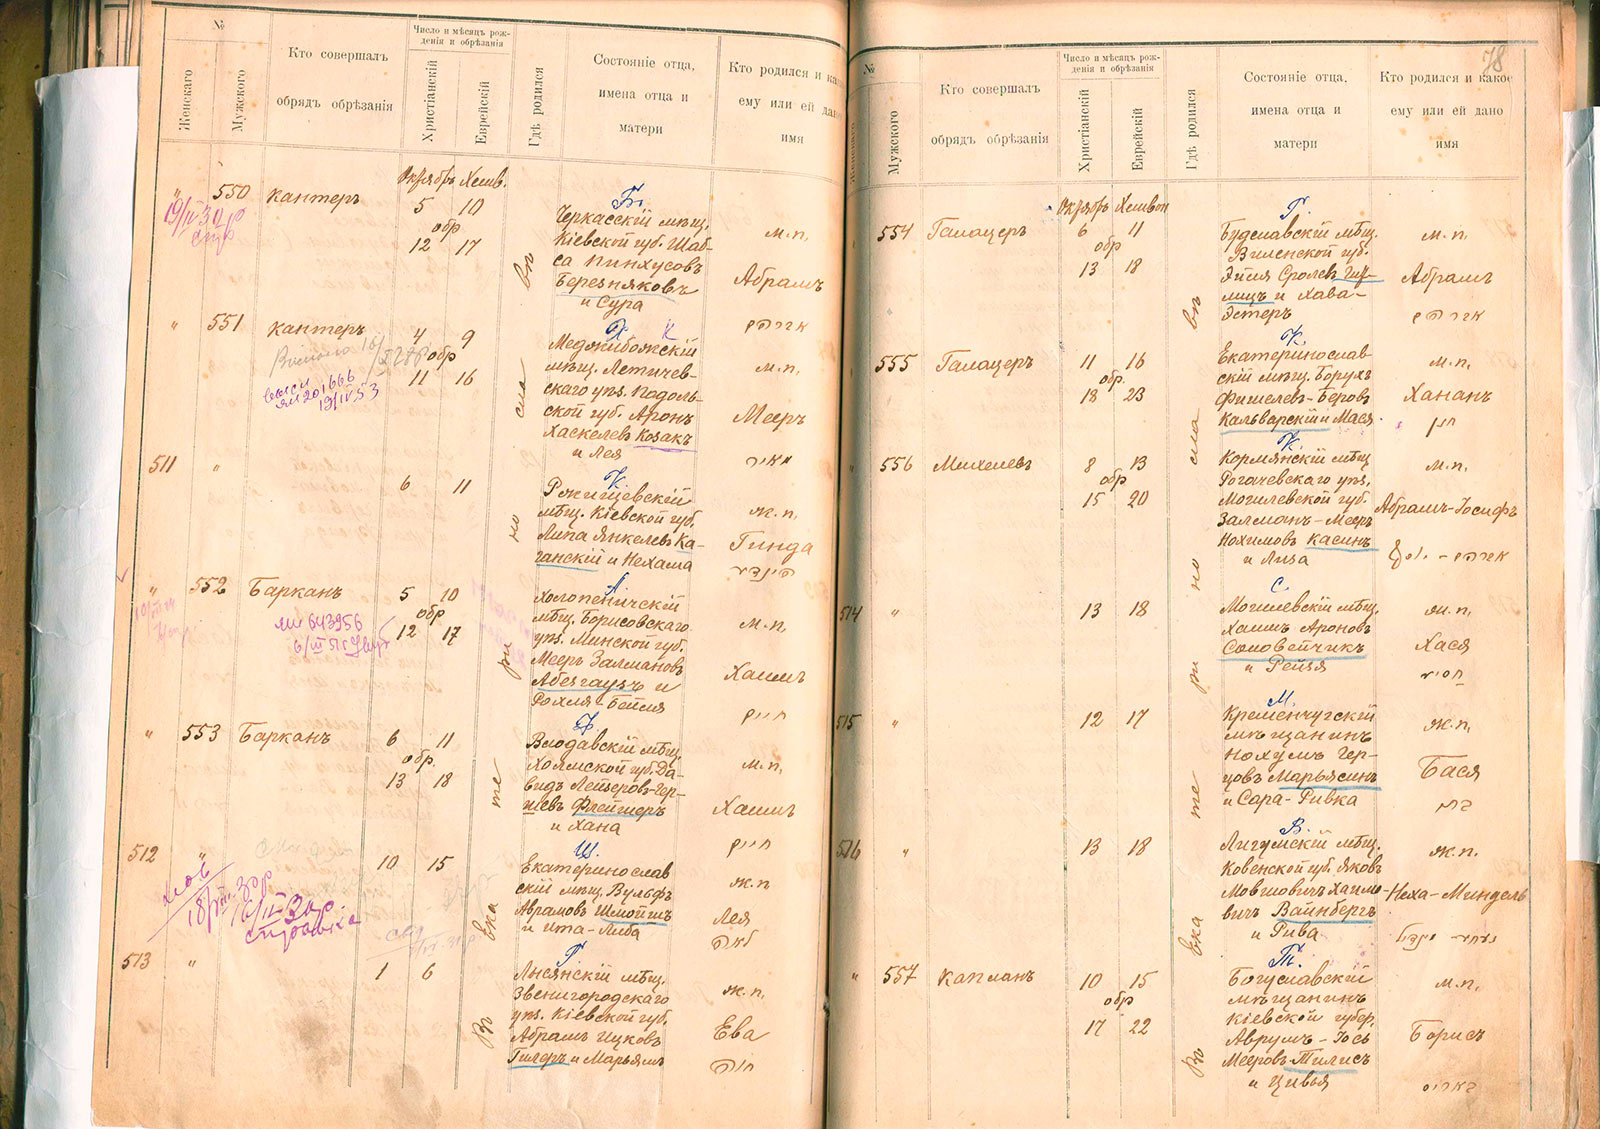 №
Женскаго
Мужского
Кто совершалъ
обрядъ обрѣзанія
Число и мѣсяцъ рож-
денія и обрѣзанія
Христіанскій
Еврейскій
Гдѣ родился
Состояніе отца,
имена отца и
матери
Кто родился и како
ему или ей дано
имя
Октябрь Хешв.
" 550 Кантеръ 5 10
обр
12 17
Б.
Черкасскій мѣщ.
Кіевской губ. Шаб-
са Пинхусовъ
Березняковъ
и Сура
м.п.
Абрамъ
19/IV 30 р
" 551 Кантеръ 4 9
обр
11 16
Х К
Меджибожскій
мѣщ. Летичев-
скаго уѣз. Подоль-
ской губ. Аронъ
Хаскелевъ Козакъ
и Лея
м.п.
Мееръ
מאיר
201666
19/IV 53
511 " 6 11
К.
Рокищевскій
мѣщ. Кіевской губ.
Липа Янкелевъ Ка-
ганскій и Нехама
ж.п.
Гинда
הינדא
" 552 Барканъ 5 10
обр
12 17
А
Холопеничскій
мѣщ. Борисовскаго
уѣз. Минской губ.
Мееръ Залмановъ
Абезгаузъ и
Рохля-Бейля
м.п.
Хаимъ
חיים
643956
" 553 Барканъ 6 11
обр.
13 18
Ф.
Влодавскій мѣщ.
Холмской губ. Да-
видъ Лейзеровъ-Гер-
шевъ Флейшеръ
и Хана
м.п.
Хаимъ
חיים
512 " 10 15
Ш.
Екатеринослав
скій мѣщ. Вульфъ
Аврамовъ Шмойшъ
и Ита-Либа
ж.п
Лея
לאה
справка
513 " 1 6
Г.
Лысянскій мѣщ.
Звенигородскаго
уѣз. Кіевской губ.
Абрамъ Ицковъ
Гилеръ и Марьямъ
ж.п.
Ева
חוה
Въ Екатеринославѣ
78
№
Мужского
Кто совершалъ
обрядъ обрѣзанія
Число и мѣсяцъ рож-
денія и обрѣзанія
Христіанскій
Еврейскій
Гдѣ родился
Состояніе отца,
имена отца и
матери
Кто родился и какое
ему или ей дано
имя
Октябрь Хешвон
554 Галацеръ 6 11
обр
13 18
Г.
Будславскій мѣщ.
Виленской губ.
Эйля Сролевъ Гур-
и Хава-
Эстеръ
м.п.
Абрамъ
אברהם
555 Галацеръ 11 16
обр.
18 23
К.
Екатеринослав-
скій мѣщ. Борухъ
Фишелевъ-Беровъ
Кальварскій и Мася
м.п.
Хананъ
חנן
556 Михелевъ 8 13
обр
15 20
К.
Кормянскій мѣщ
Рогачевскаго уѣз.
Могилевской губ.
Залманъ-Мееръ
Нохимовъ Касинъ
и Лиза
м.п.
Абрамъ-Іосифъ
אברהם-יוסף
514 " 13 18
С.
Могилевскій мѣщ.
Хаимъ Ароновъ
Соловейчикъ
и Рейзя
ж.п.
Хася
חסיא
515 " 12 17
М.
Кременчугскій
мѣщанинъ
Нохумъ Гер-
цовъ Марьясинъ
и Сара-Ривка
ж.п.
Бася
516 " 13 18
В.
Лигумскій мѣщ.
Ковенской губ. Яковъ
Мовшовичъ Хаимо-
вичъ Вайнбергъ
и Рива
ж.п.
Неха-Миндель
נעכא-מינדל
" 557 Капланъ 10 15
обр
17 22
Т.
Богуславскій
мѣщанинъ
Кіевской губер.
Аврумъ-Іось
Мееровъ-Тилисъ
и Цивья
м.п.
Борисъ
Въ Екатеринославѣ